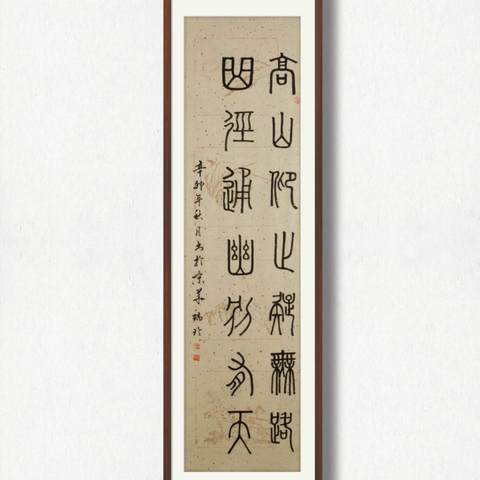 高山仰止疑無路
曲徑通幽別有天
辛卯年秋月书於京華